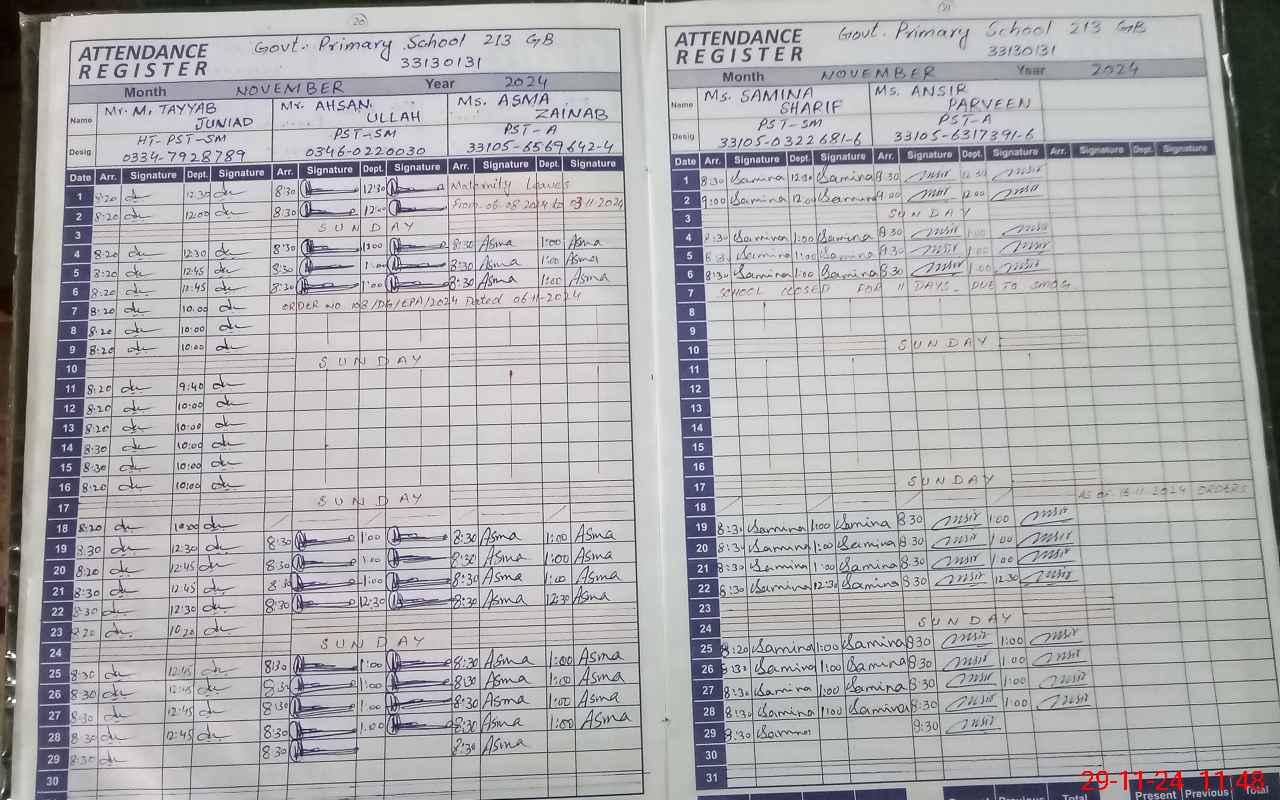 20
ATTENDANCE
REGISTER
Govt. Primary School 213 GB
33130131
Month NOVEMBER Year 2024
Name Mr. M. TAYYAB JUNIAD Mr. AHSAN ULLAH Ms. ASMA ZAINAB
Desig. HT-PST-SM PST-SM PST-A
0334-7928789 0346-0220030 33105-6569642-4
Date Arr. Signature Dept. Signature Arr. Signature Dept. Signature Arr. Signature Dept. Signature
1 8:20 12:30 8:30 12:30 Maternity Leaves
2 8:20 12:00 8:30 12:00 From 06.08.2024 to 03.11.2024
3 SUNDAY
4 8:20 12:30 8:30 1:00 8:30 Asma 1:00 Asma
5 8:20 12:45 8:30 1:00 8:30 Asma 1:00 Asma
6 8:20 12:45 8:30 1:00 8:30 Asma 1:00 Asma
7 8:20 10:00 ORDER NO. 108/DG/EPA/2024 Dated 06-11-2024
8 8:20 10:00
9 8:20 10:00
10 SUNDAY
11 8:20 9:40
12 8:20 10:00
13 8:20 10:00
14 8:30 10:00
15 8:30 10:00
16 8:20 10:00
17 SUNDAY
18 8:20 10:00
19 8:30 12:30 8:30 1:00 8:30 Asma 1:00 Asma
20 8:20 12:45 8:30 1:00 8:30 Asma 1:00 Asma
21 8:30 12:45 8:30 1:00 8:30 Asma 1:00 Asma
22 8:30 12:30 8:30 12:30 8:30 Asma 12:30 Asma
23 8:20 10:20
24 SUNDAY
25 8:30 12:45 8:30 1:00 8:30 Asma 1:00 Asma
26 8:30 12:45 8:30 1:00 8:30 Asma 1:00 Asma
27 8:30 12:45 8:30 1:00 8:30 Asma 1:00 Asma
28 8:30 12:45 8:30 1:00 8:30 Asma 1:00 Asma
29 8:30 8:30 8:30 Asma
30
21
ATTENDANCE
REGISTER
Govt. Primary School 213 GB
33130131
Month NOVEMBER Year 2024
Name Ms. SAMINA SHARIF Ms. ANSIR PARVEEN
Desig. PST-SM PST-A
33105-0322681-6 33105-6317391-6
Date Arr. Signature Dept. Signature Arr. Signature Dept. Signature Arr. Signature Dept. Signature
1 8:30 Samina 12:30 Samina 8:30 12:30
2 9:00 Samina 12:00 Samina 9:00 12:00
3 SUNDAY
4 8:30 Samina 1:00 Samina 8:30 1:00
5 8:30 Samina 1:00 Samina 8:30 1:00
6 8:30 Samina 1:00 Samina 8:30 1:00
7 SCHOOL CLOSED FOR 11 DAYS DUE TO SMOG
8
9
10 SUNDAY
11
12
13
14
15
16
17 SUNDAY
18 AS OF 2024 ORDERS
19 8:30 Samina 1:00 Samina 8:30 1:00
20 8:30 Samina 1:00 Samina 8:30 1:00
21 8:30 Samina 1:00 Samina 8:30 1:00
22 8:30 Samina 12:30 Samina 8:30 12:30
23
24 SUNDAY
25 8:20 Samina 1:00 Samina 8:30 1:00
26 8:30 Samina 1:00 Samina 8:30 1:00
27 8:30 Samina 1:00 Samina 8:30 1:00
28 8:30 Samina 1:00 Samina 8:30 1:00
29 8:30 Samina 8:30
30
31
Previous Total Present Previous Total
29-11-24 11:48